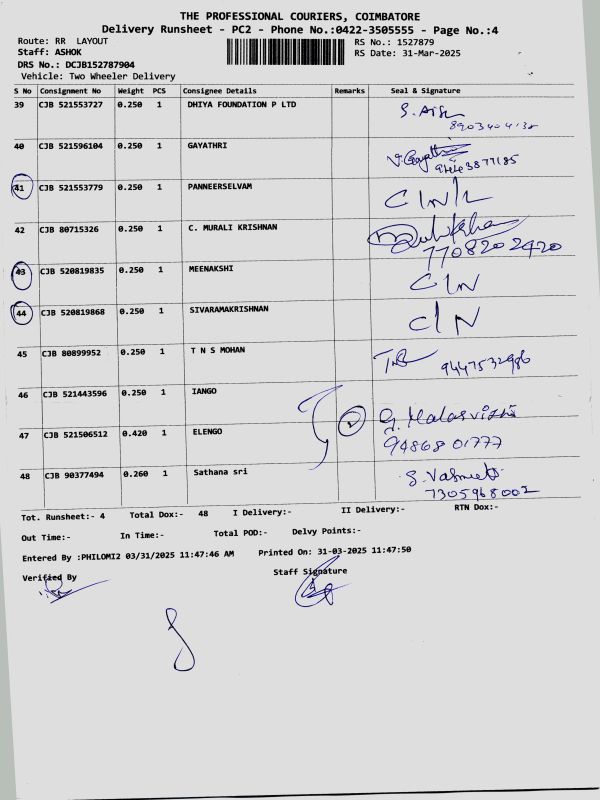 THE PROFESSIONAL COURIERS, COIMBATORE
Delivery Runsheet - PC2 - Phone No.:0422-3505555 - Page No.:4
Route: RR LAYOUT
RS No.: 1527879
Staff: ASHOK
RS Date: 31-Mar-2025
DRS No.: DCJB152787904
Vehicle: Two Wheeler Delivery
S No Consignment No Weight PCS Consignee Details Remarks Seal & Signature
39 CJB 521553727 0.250 1 DHIYA FOUNDATION P LTD
40 CJB 521596104 0.250 1 GAYATHRI
41 CJB 521553779 0.250 1 PANNEERSELVAM
42 CJB 80715326 0.250 1 C. MURALI KRISHNAN
7708202420
43 CJB 520819835 0.250 1 MEENAKSHI C/N
44 CJB 520819868 0.250 1 SIVARAMAKRISHNAN C/N
45 CJB 80899952 0.250 1 T N S MOHAN 9447532986
46 CJB 521443596 0.250 1 IANGO
47 CJB 521506512 0.420 1 ELENGO
94868 01777
48 CJB 90377494 0.260 1 Sathana sri
7305968002
Tot. Runsheet:- 4 Total Dox:- 48 I Delivery:- II Delivery:- RTN Dox:-
Out Time:- In Time:- Total POD:- Delvy Points:-
Entered By :PHILOMI2 03/31/2025 11:47:46 AM Printed On: 31-03-2025 11:47:50
Verified By Staff Signature